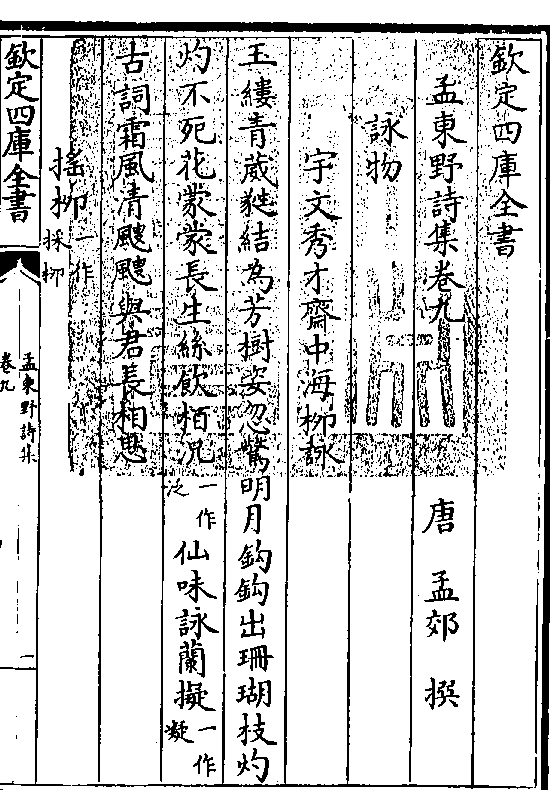 欽定四庫全書
孟東野詩集卷九　唐　孟郊　撰
詠物
宇文秀才齋中海柳詠
玉縷青葳蕤結為芳樹姿忽驚明月鈎鈎出珊瑚枝灼
灼不死花蒙蒙長生絲飲栢況一作泛仙味詠蘭擬一作凝
古詞霜風清颼颼與君長相思
搖柳一作採柳
欽定四庫全書
孟東野詩集
卷九
一